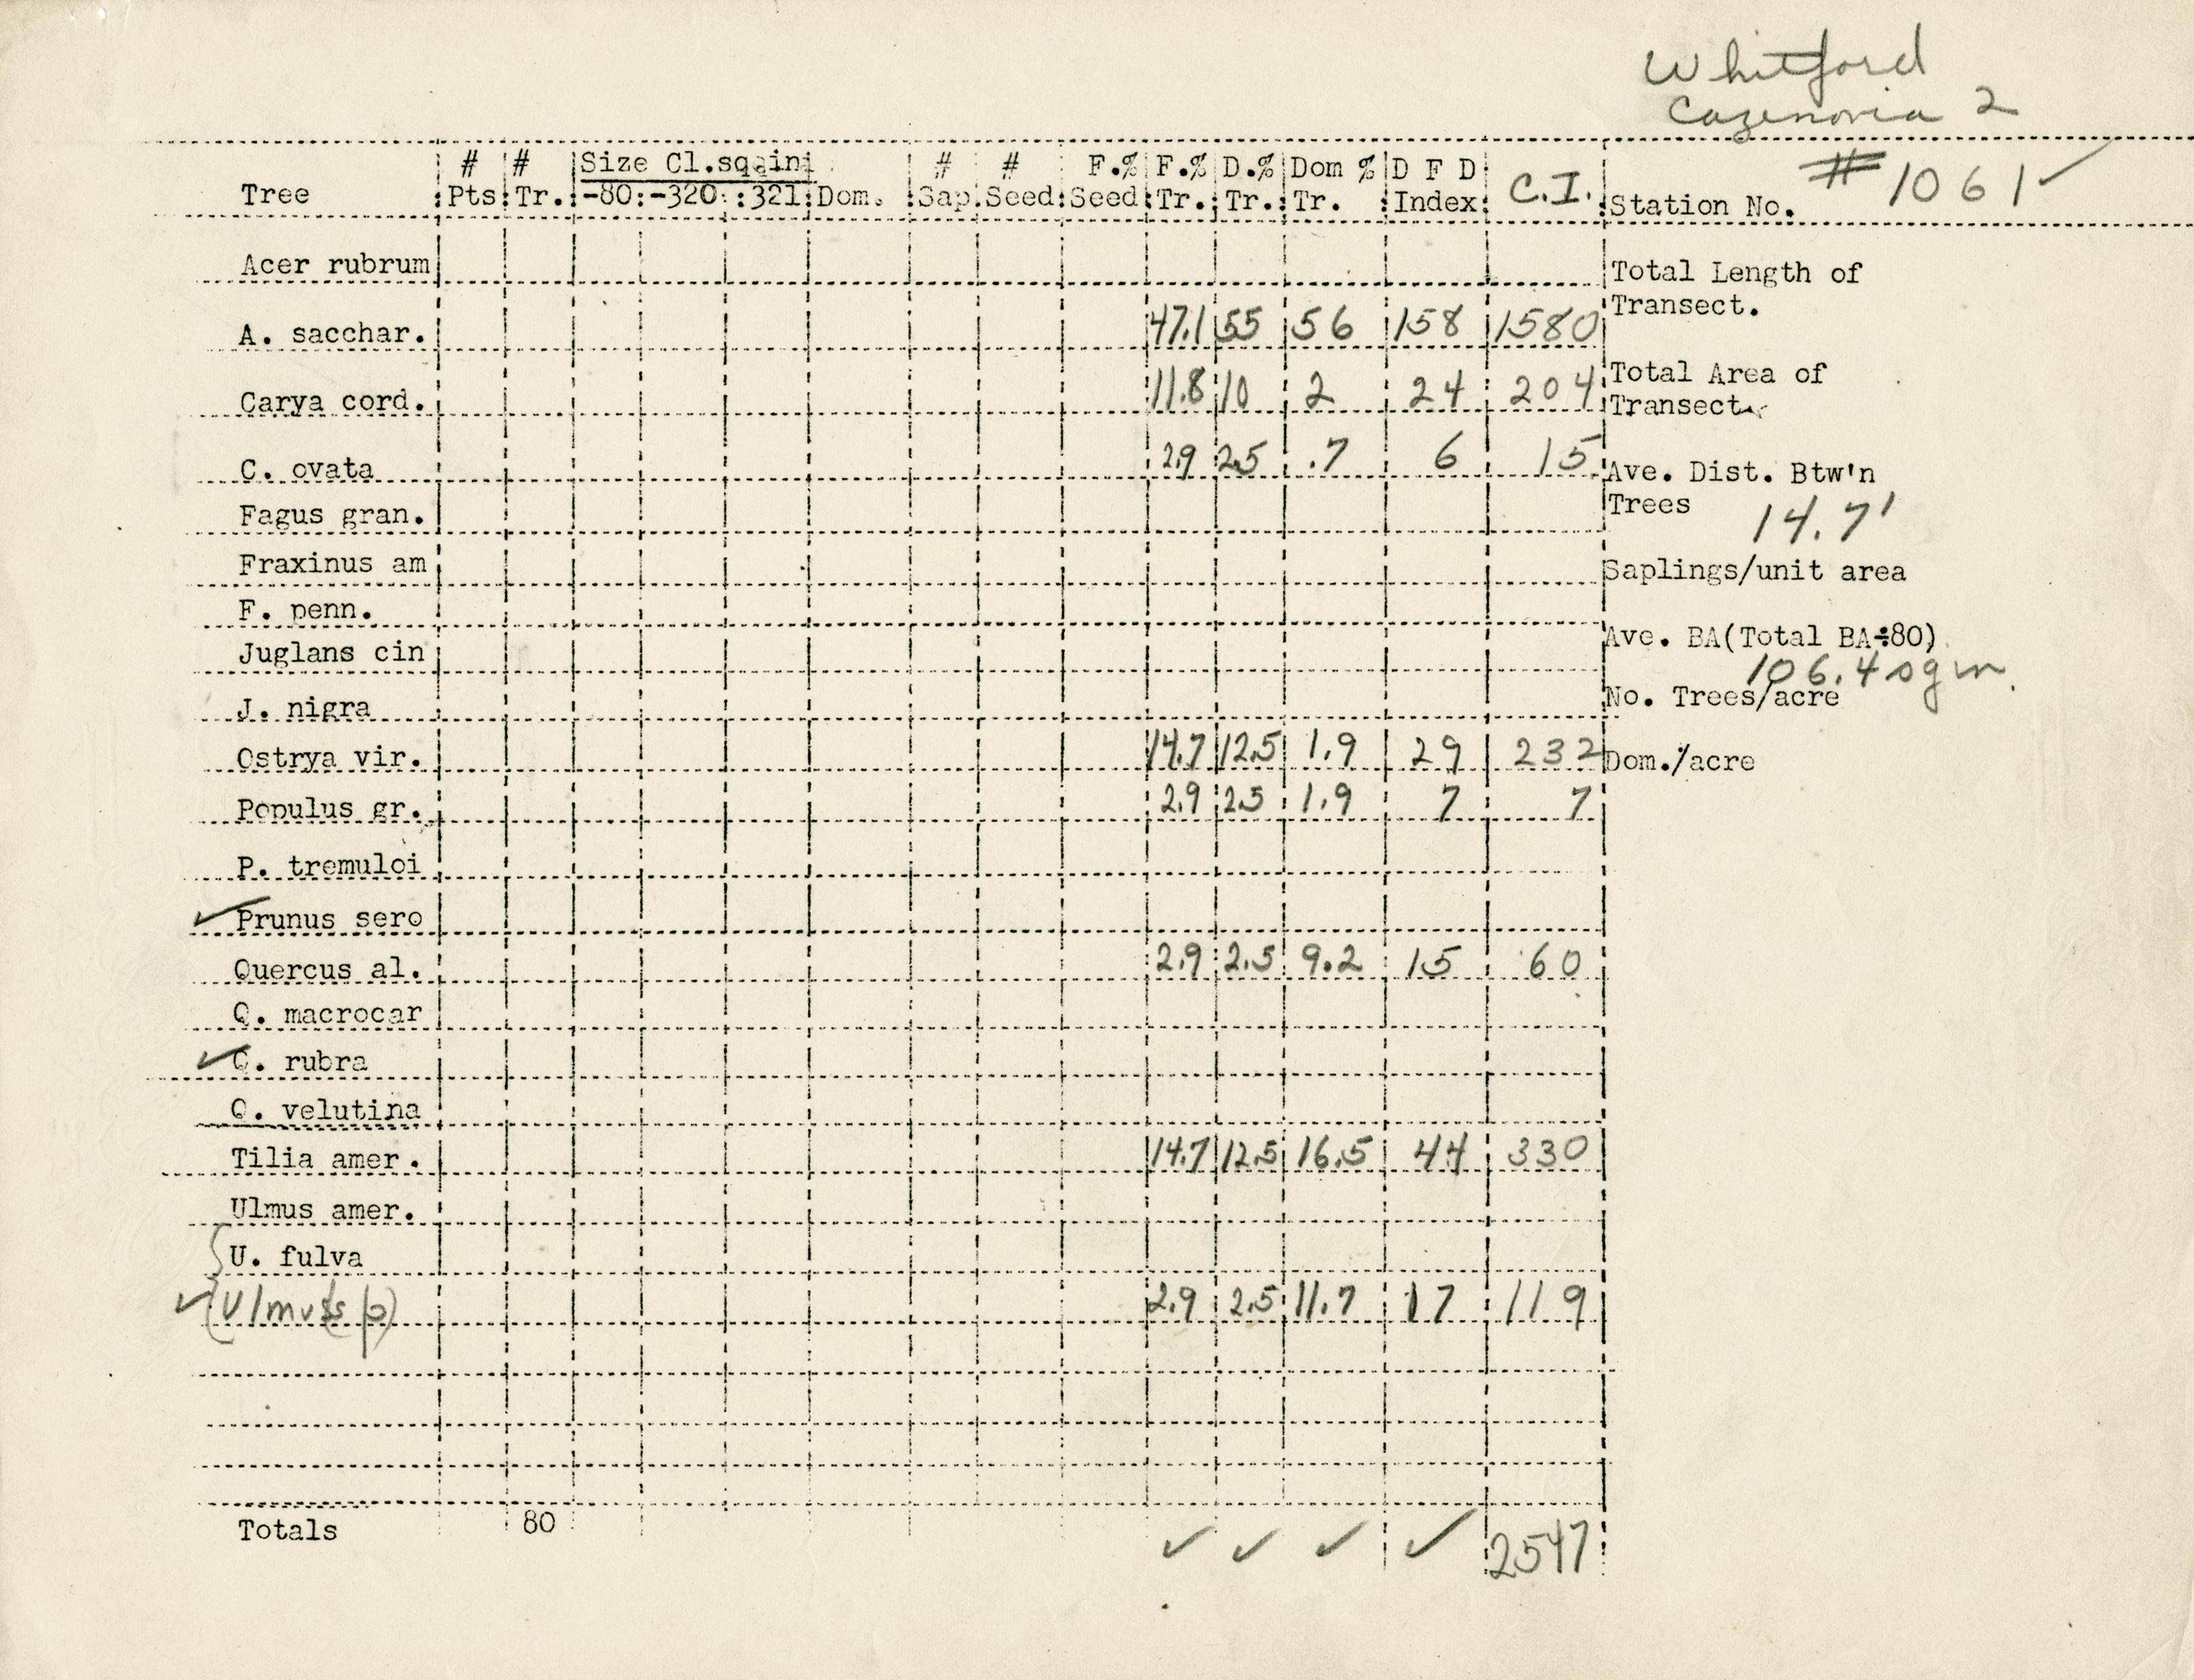 Whitford
Cazenovia 2
# # Size Cl.sq.in # # F.% F.% D.% Dom % D F D
Tree Pts Tr. -80 -320 321 Dom. Sap. Seed Seed Tr. Tr. Tr. Index C.I. Station No. # 1061 ✓
Acer rubrum
Total Length of
Transect.
A. sacchar. 47.1 55 56 158 1580
Total Area of
Transect.
Carya cord. 11.8 10 2 24 204
C. ovata 2.9 2.5 .7 6 15
Ave. Dist. Btw'n
Trees 14.7'
Fagus gran.
Fraxinus am
Saplings/unit area
F. penn.
Ave. BA(Total BA÷80)
106.4 sq in.
Juglans cin
No. Trees/acre
J. nigra
Ostrya vir. 14.7 12.5 1.9 29 232
Dom./acre
Populus gr. 2.9 2.5 1.9 7 7
P. tremuloi
✓ Prunus sero
Quercus al. 2.9 2.5 9.2 15 60
Q. macrocar
✓ Q. rubra
Q. velutina
Tilia amer. 14.7 12.5 16.5 44 330
Ulmus amer.
U. fulva
✓ (Ulmus sp) 2.9 2.5 11.7 17 119
Totals 80 ✓ ✓ ✓ ✓ 2547